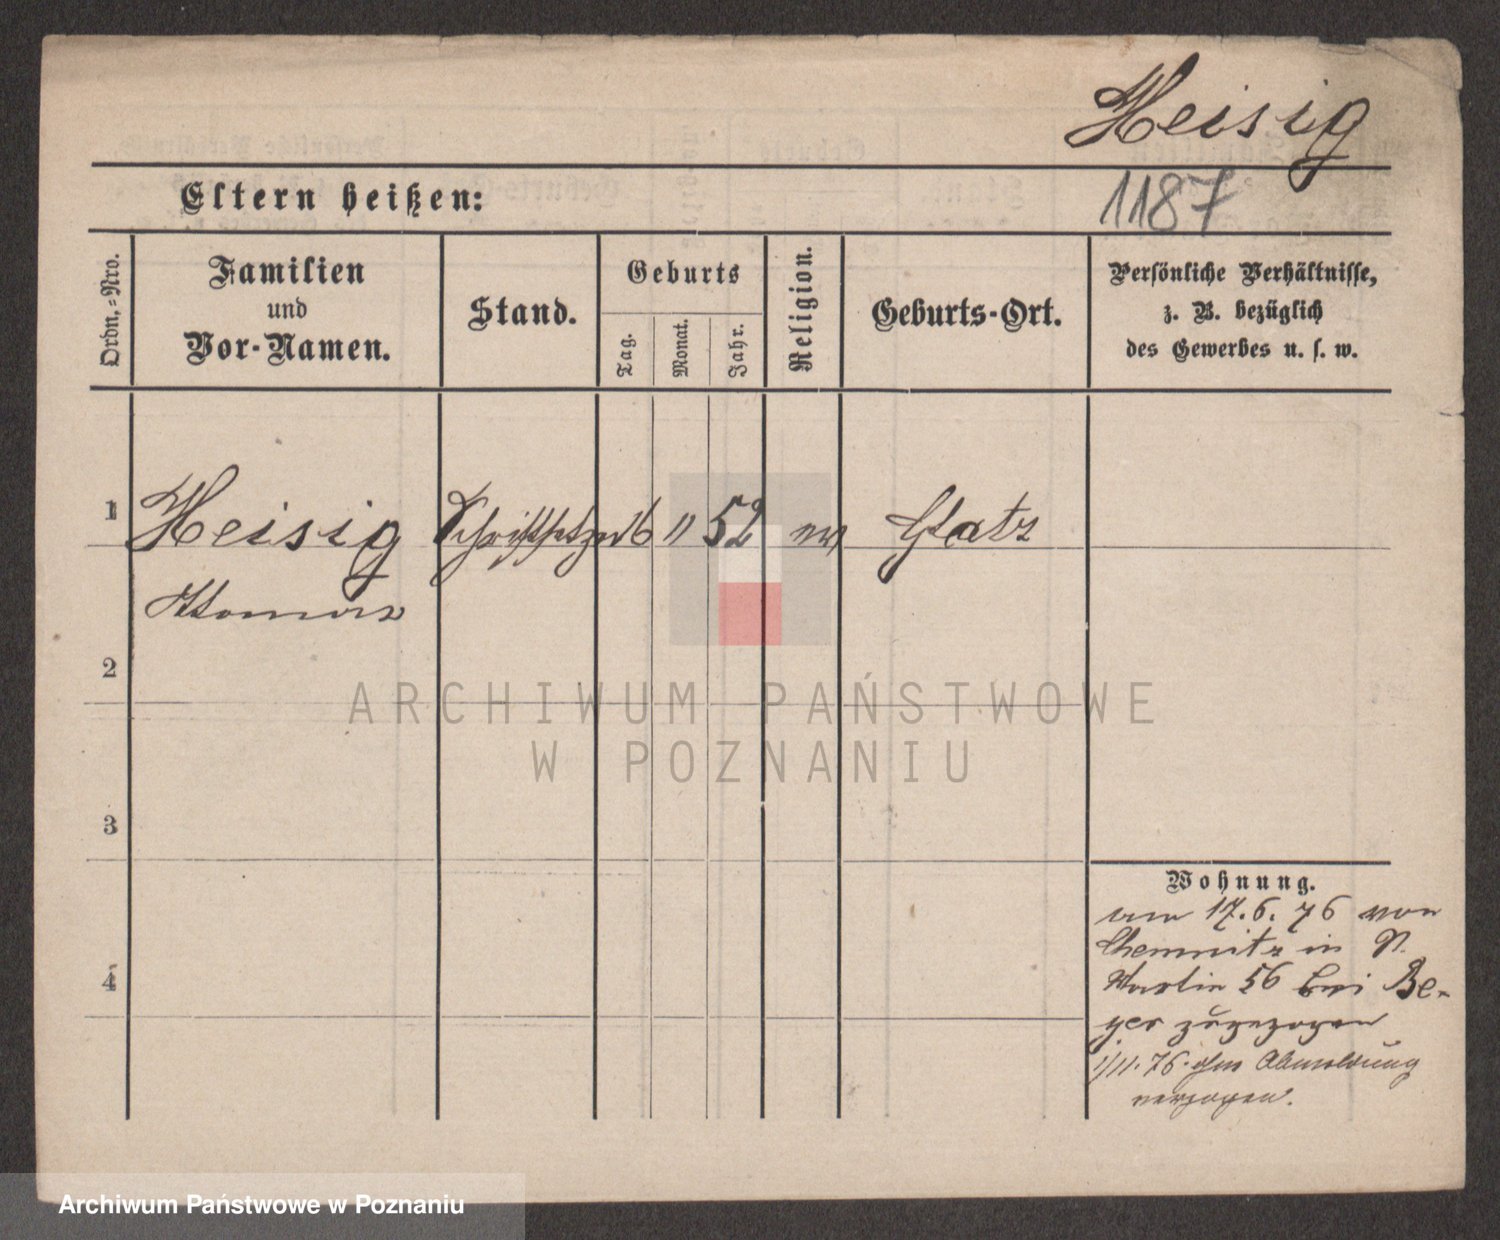 Heisig
Eltern heißen:
1187
Ordn.=Nro.
Familien
und
Vor-Namen.
Stand.
Geburts
Tag.
Monat.
Jahr.
Religion.
Geburts-Ort.
Persönliche Verhältnisse,
z. B. bezüglich
des Gewerbes u. s. w.
1 Heisig Schriftsetzer 16 11 52 Glatz
2
ARCHIWUM PAŃSTWOWE
W POZNANIU
3
Wohnung.
am 17. 6. 76 von
Chemnitz in St.
Martin 56 bei Be-
yer zugezogen
4
1/11. 76. ohne Abmeldung
verzogen.
Archiwum Państwowe w Poznaniu